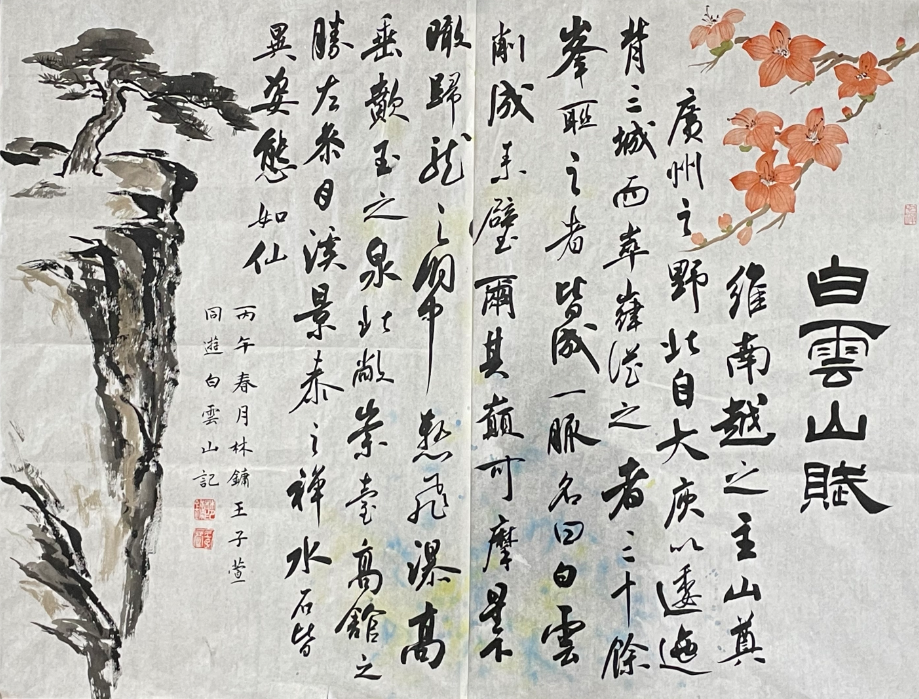 白雲山賦
維南越之主山奠
廣州之野北自大庾以逶迤
背三城而崒嵂從之者三十餘
峯聯之者皆成一脈名曰白雲
削成赤壁爾其巔可摩星下
瞰歸龍之洞中懸飛瀑高
垂漱玉之泉北敞崇臺高館之
勝左參月溪景泰之禪水石皆
異姿態如仙
丙午春月林鏞王子萱
同遊白雲山記